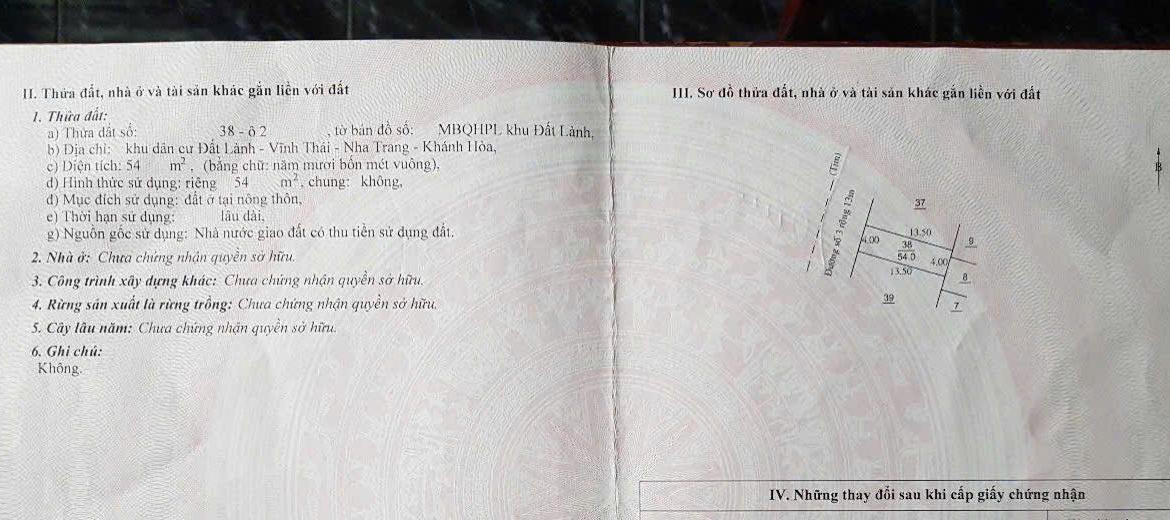 II. Thửa đất, nhà ở và tài sản khác gắn liền với đất
1. Thửa đất:
a) Thửa đất số: 38 - ô 2 , tờ bản đồ số: MBQHPL khu Đất Lành,
b) Địa chỉ: khu dân cư Đất Lành - Vĩnh Thái - Nha Trang - Khánh Hòa,
c) Diện tích: 54 m², (bằng chữ: năm mươi bốn mét vuông),
d) Hình thức sử dụng: riêng 54 m², chung: không,
đ) Mục đích sử dụng: đất ở tại nông thôn,
e) Thời hạn sử dụng: lâu dài,
g) Nguồn gốc sử dụng: Nhà nước giao đất có thu tiền sử dụng đất.
2. Nhà ở: Chưa chứng nhận quyền sở hữu.
3. Công trình xây dựng khác: Chưa chứng nhận quyền sở hữu.
4. Rừng sản xuất là rừng trồng: Chưa chứng nhận quyền sở hữu.
5. Cây lâu năm: Chưa chứng nhận quyền sở hữu.
6. Ghi chú:
Không.
III. Sơ đồ thửa đất, nhà ở và tài sản khác gắn liền với đất
B
(Tim)
Đường số 3 rộng 13m
37
13.50
4.00
38
54.0
4.00
13.50
9
8
7
39
IV. Những thay đổi sau khi cấp giấy chứng nhận